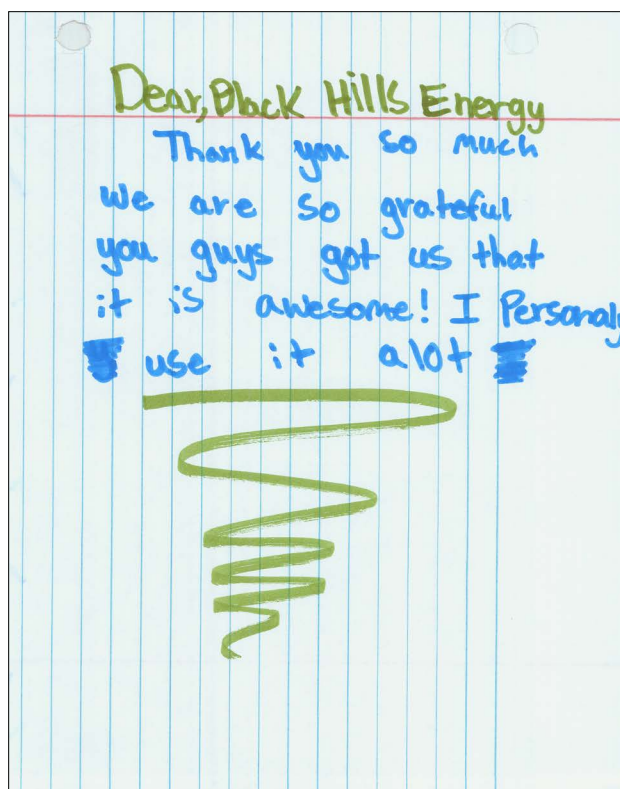 Dear, Black Hills Energy
Thank you so much
we are so grateful
you guys got us that
it is awesome! I Personaly
use it alot